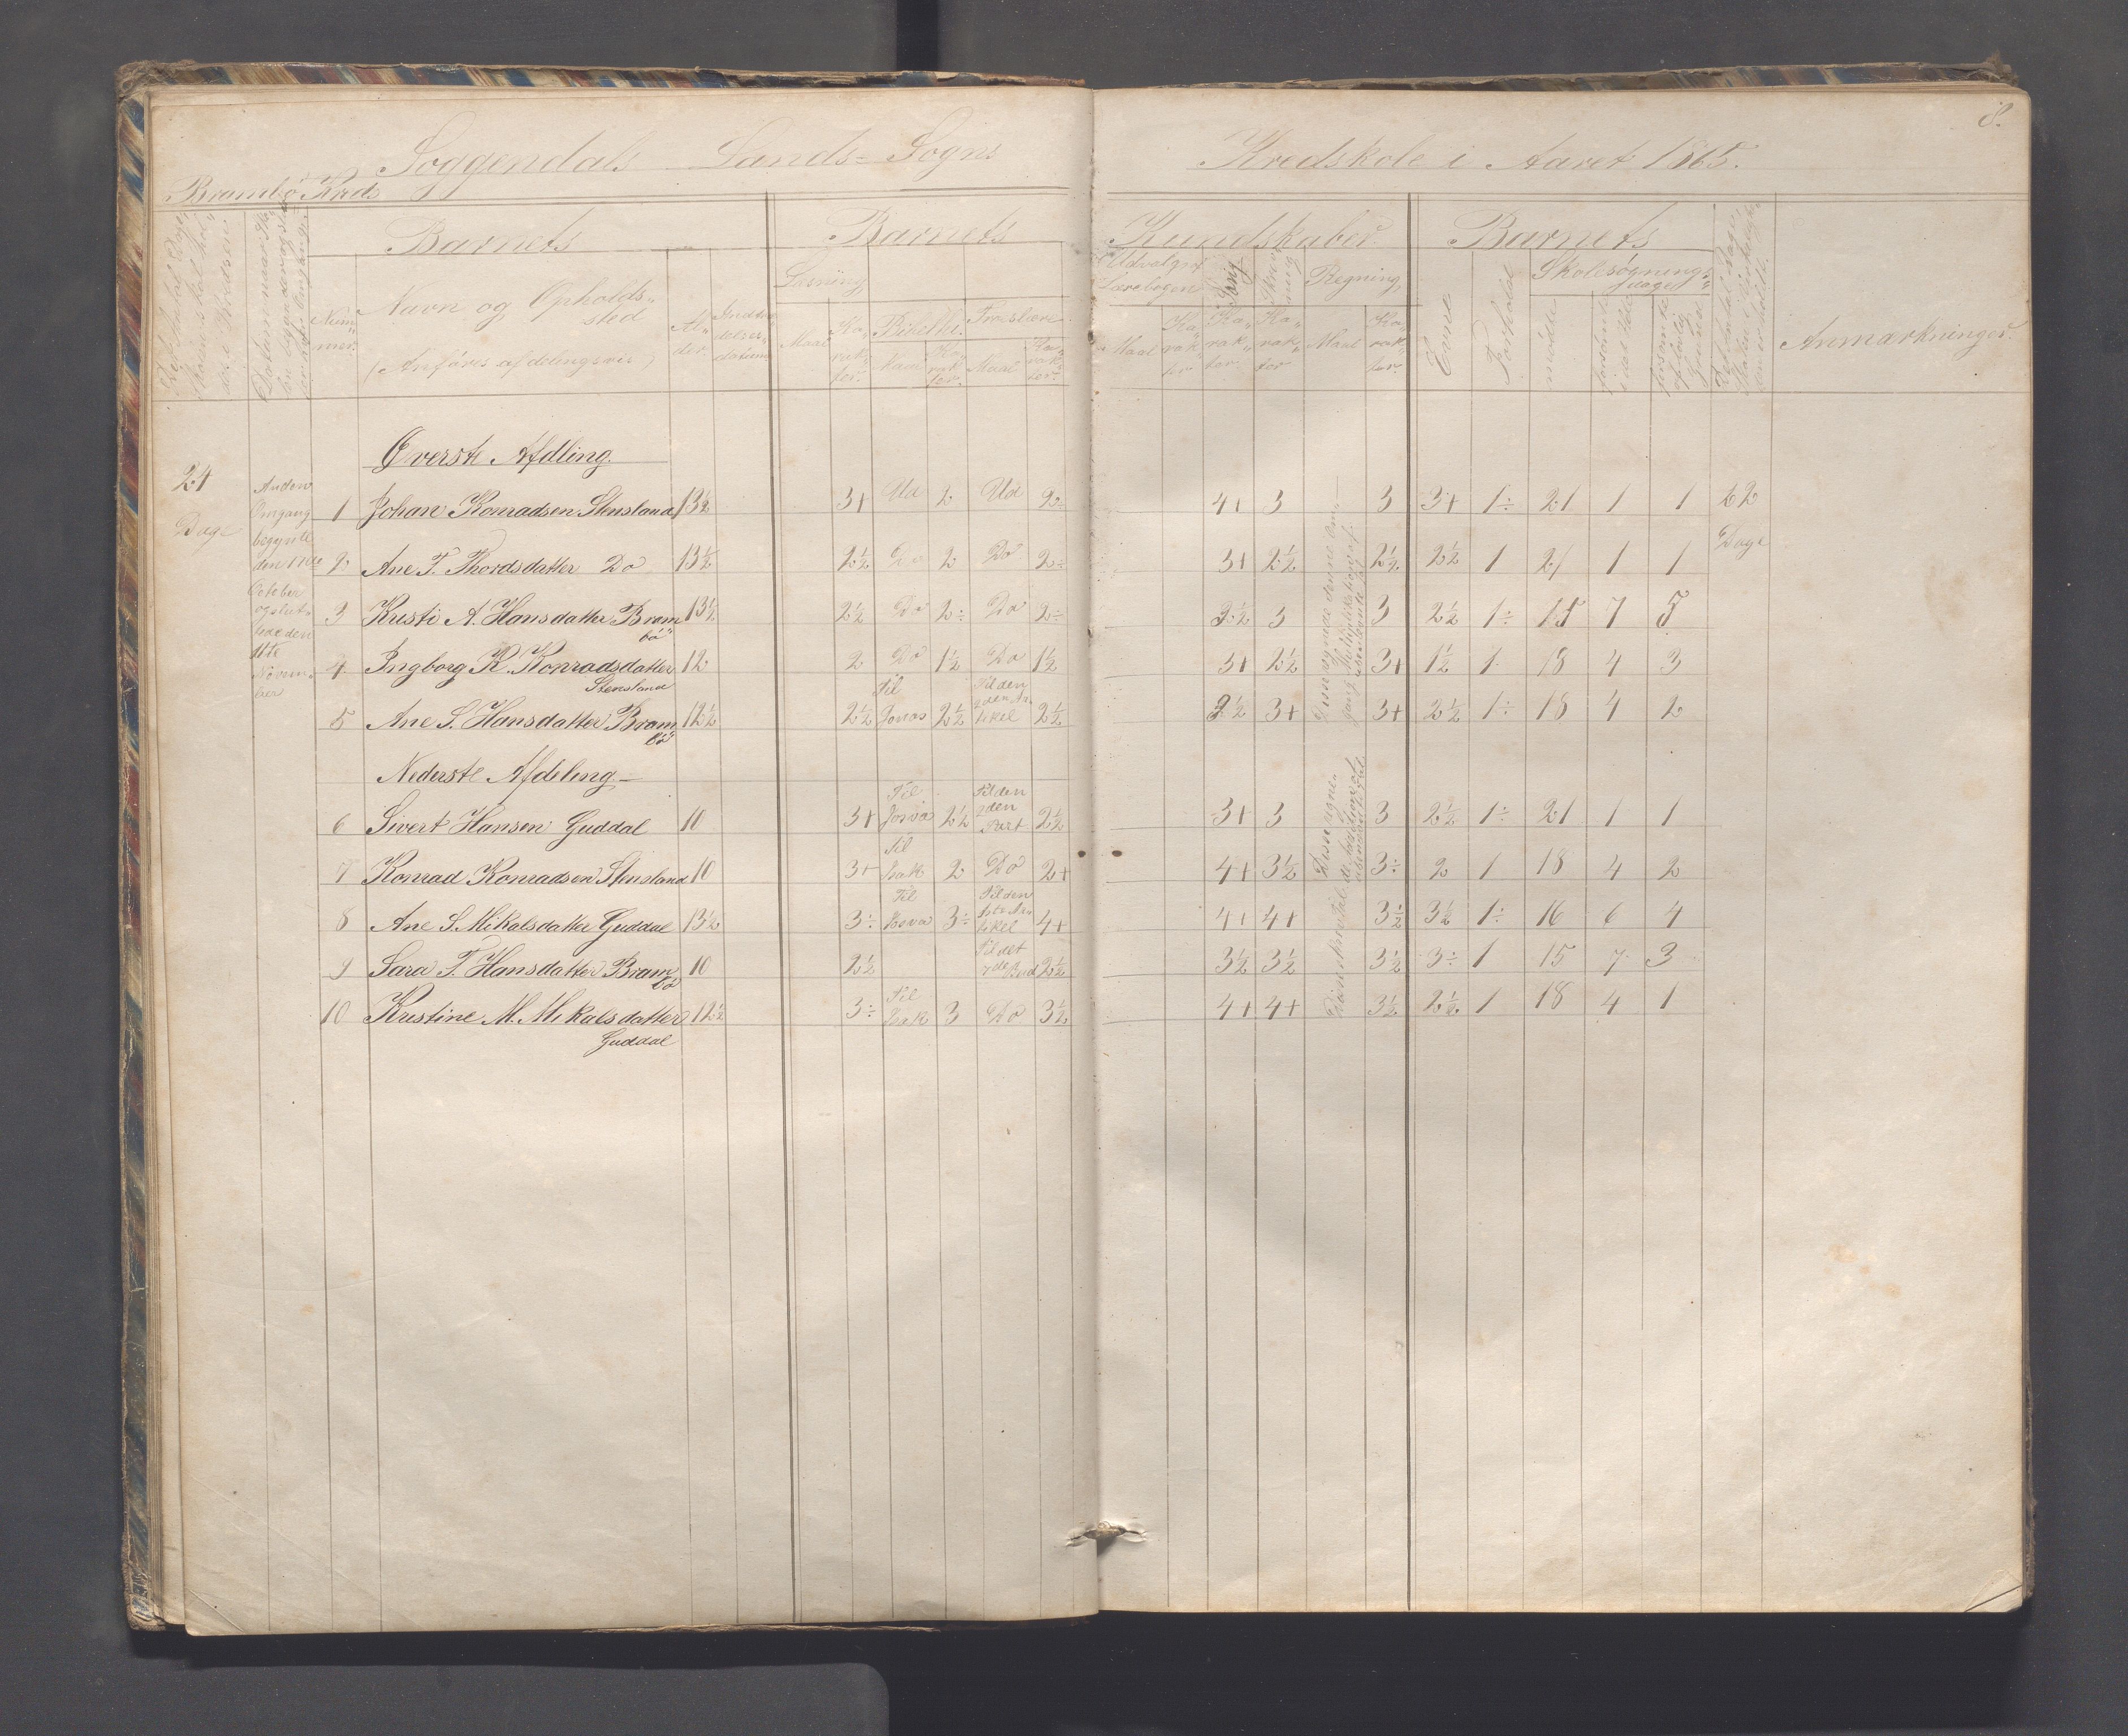 8.
Soggendals Lands=Sogns Kredskole i Aaret 1865.
Brambø Kreds
Barnets Barnets Kundskaber. Barnets
Nummer. Navn og Opholdssted (Anføres afdelingsvis) Alder Indtrædelsesdatum Læsning Udvalgt Lærebogen Sang Skrivning Regning Evne Forhold Skolesøgningsdage Anmærkninger.
Maal Karakter. Bibelhi. Troeslære Maal Karakter Karakter. Karakter Maal Karakter. mødte forsømte
Maal Karakter.
Øverste Afdling.
24 Dage
Anden Omgang begyndte den 17de October og sluttede den 11te November
1 Johan Konradsen Stensland 13½ 3+ Ud 2 Ud 2÷ 4+ 3 3 3+ 1÷ 21 1 1 22 Dage
2 Ane T. Thordsdatter Do 13½ 2½ Do 2 Do 2÷ 3+ 2½ 2½ 2½ 1 21 1 1
3 Kristi A. Hansdatter Brambø 13½ 2½ Do 2÷ Do 2÷ 3½ 3 3 2½ 1÷ 15 7 5
4 Ingborg K. Konradsdatter Stensland 12 2 Do 1½ Do 1½ 3+ 2½ 3+ 1½ 1 18 4 3
5 Ane S. Hansdatter Brambø 12½ 2½ Til Jonas 2½ Til den 2den Artikel 2½ 3½ 3+ 3+ 2½ 1÷ 18 4 2
Nederste Afdeling
6 Sivert Hansen Guddal 10 3+ Til Josva 2½ Til den 2den Part 2½ 3+ 3 3 2½ 1÷ 21 1 1
7 Konrad Konradsen Stensland 10 3+ Til Isak 2 Do 2+ 4+ 3½ 3÷ 2 1 18 4 2
8 Ane S. Mikalsdatter Guddal 13½ 3÷ Til Josva 3÷ Til den 1ste Artikel 4+ 4+ 4+ 3½ 3½ 1÷ 16 6 4
9 Sara T. Hansdatter Brambø 10 2½ Til det 7de Bud 2½ 3½ 3½ 3½ 3÷ 1 15 7 3
10 Kristine M. Mikalsdatter Guddal 12½ 3÷ Til Isak 3 Do 3½ 4+ 4+ 3½ 2½ 1 18 4 1